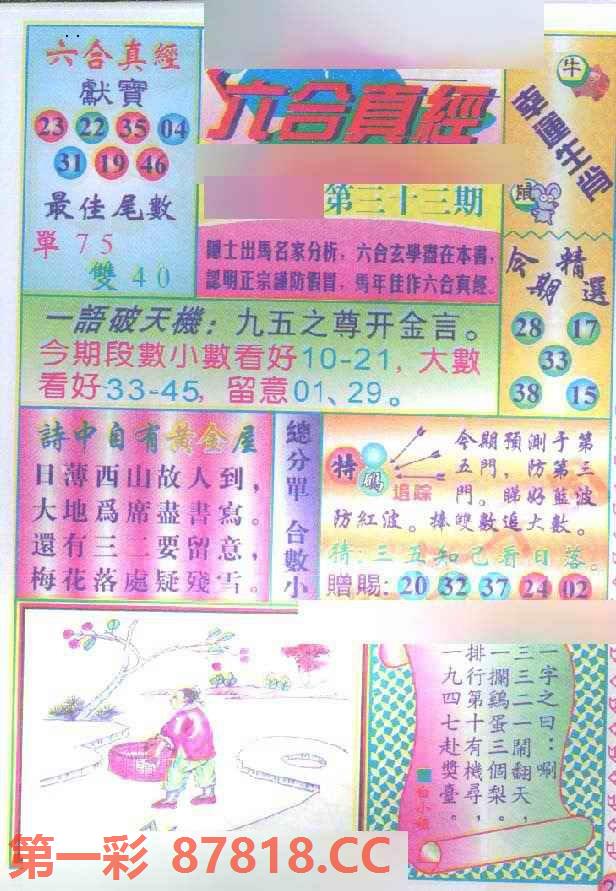 六合真經
獻寶
23 22 35 04
31 19 46
最佳尾數
單75
雙40
六合真經
第三十三期
隱士出馬名家分析，六合玄學盡在本書，
認明正宗謹防假冒，馬年佳作六合真經。
牛
幸運生肖
鼠
今期精選
28 17
33
38 15
一語破天機：九五之尊开金言。
今期段數小數看好10-21，大數
看好33-45，留意01、29。
詩中自有黃金屋
日薄西山故人到，
大地爲席盡書寫。
還有三二要留意，
梅花落處疑殘雪。
總分單 合數小
特碼
追踪
今期預測于第
五門，防第三
門。睇好藍波
防紅波。捧雙數追大數。
猜：三五知己看日落。
贈賜：20 32 37 24 02
一字之曰：唰
三三二一鬧翻天，
一擱鷄蛋三個梨。
排行第十有機尋，
一九四七赴獎臺。
白小姐
第一彩 87818.CC